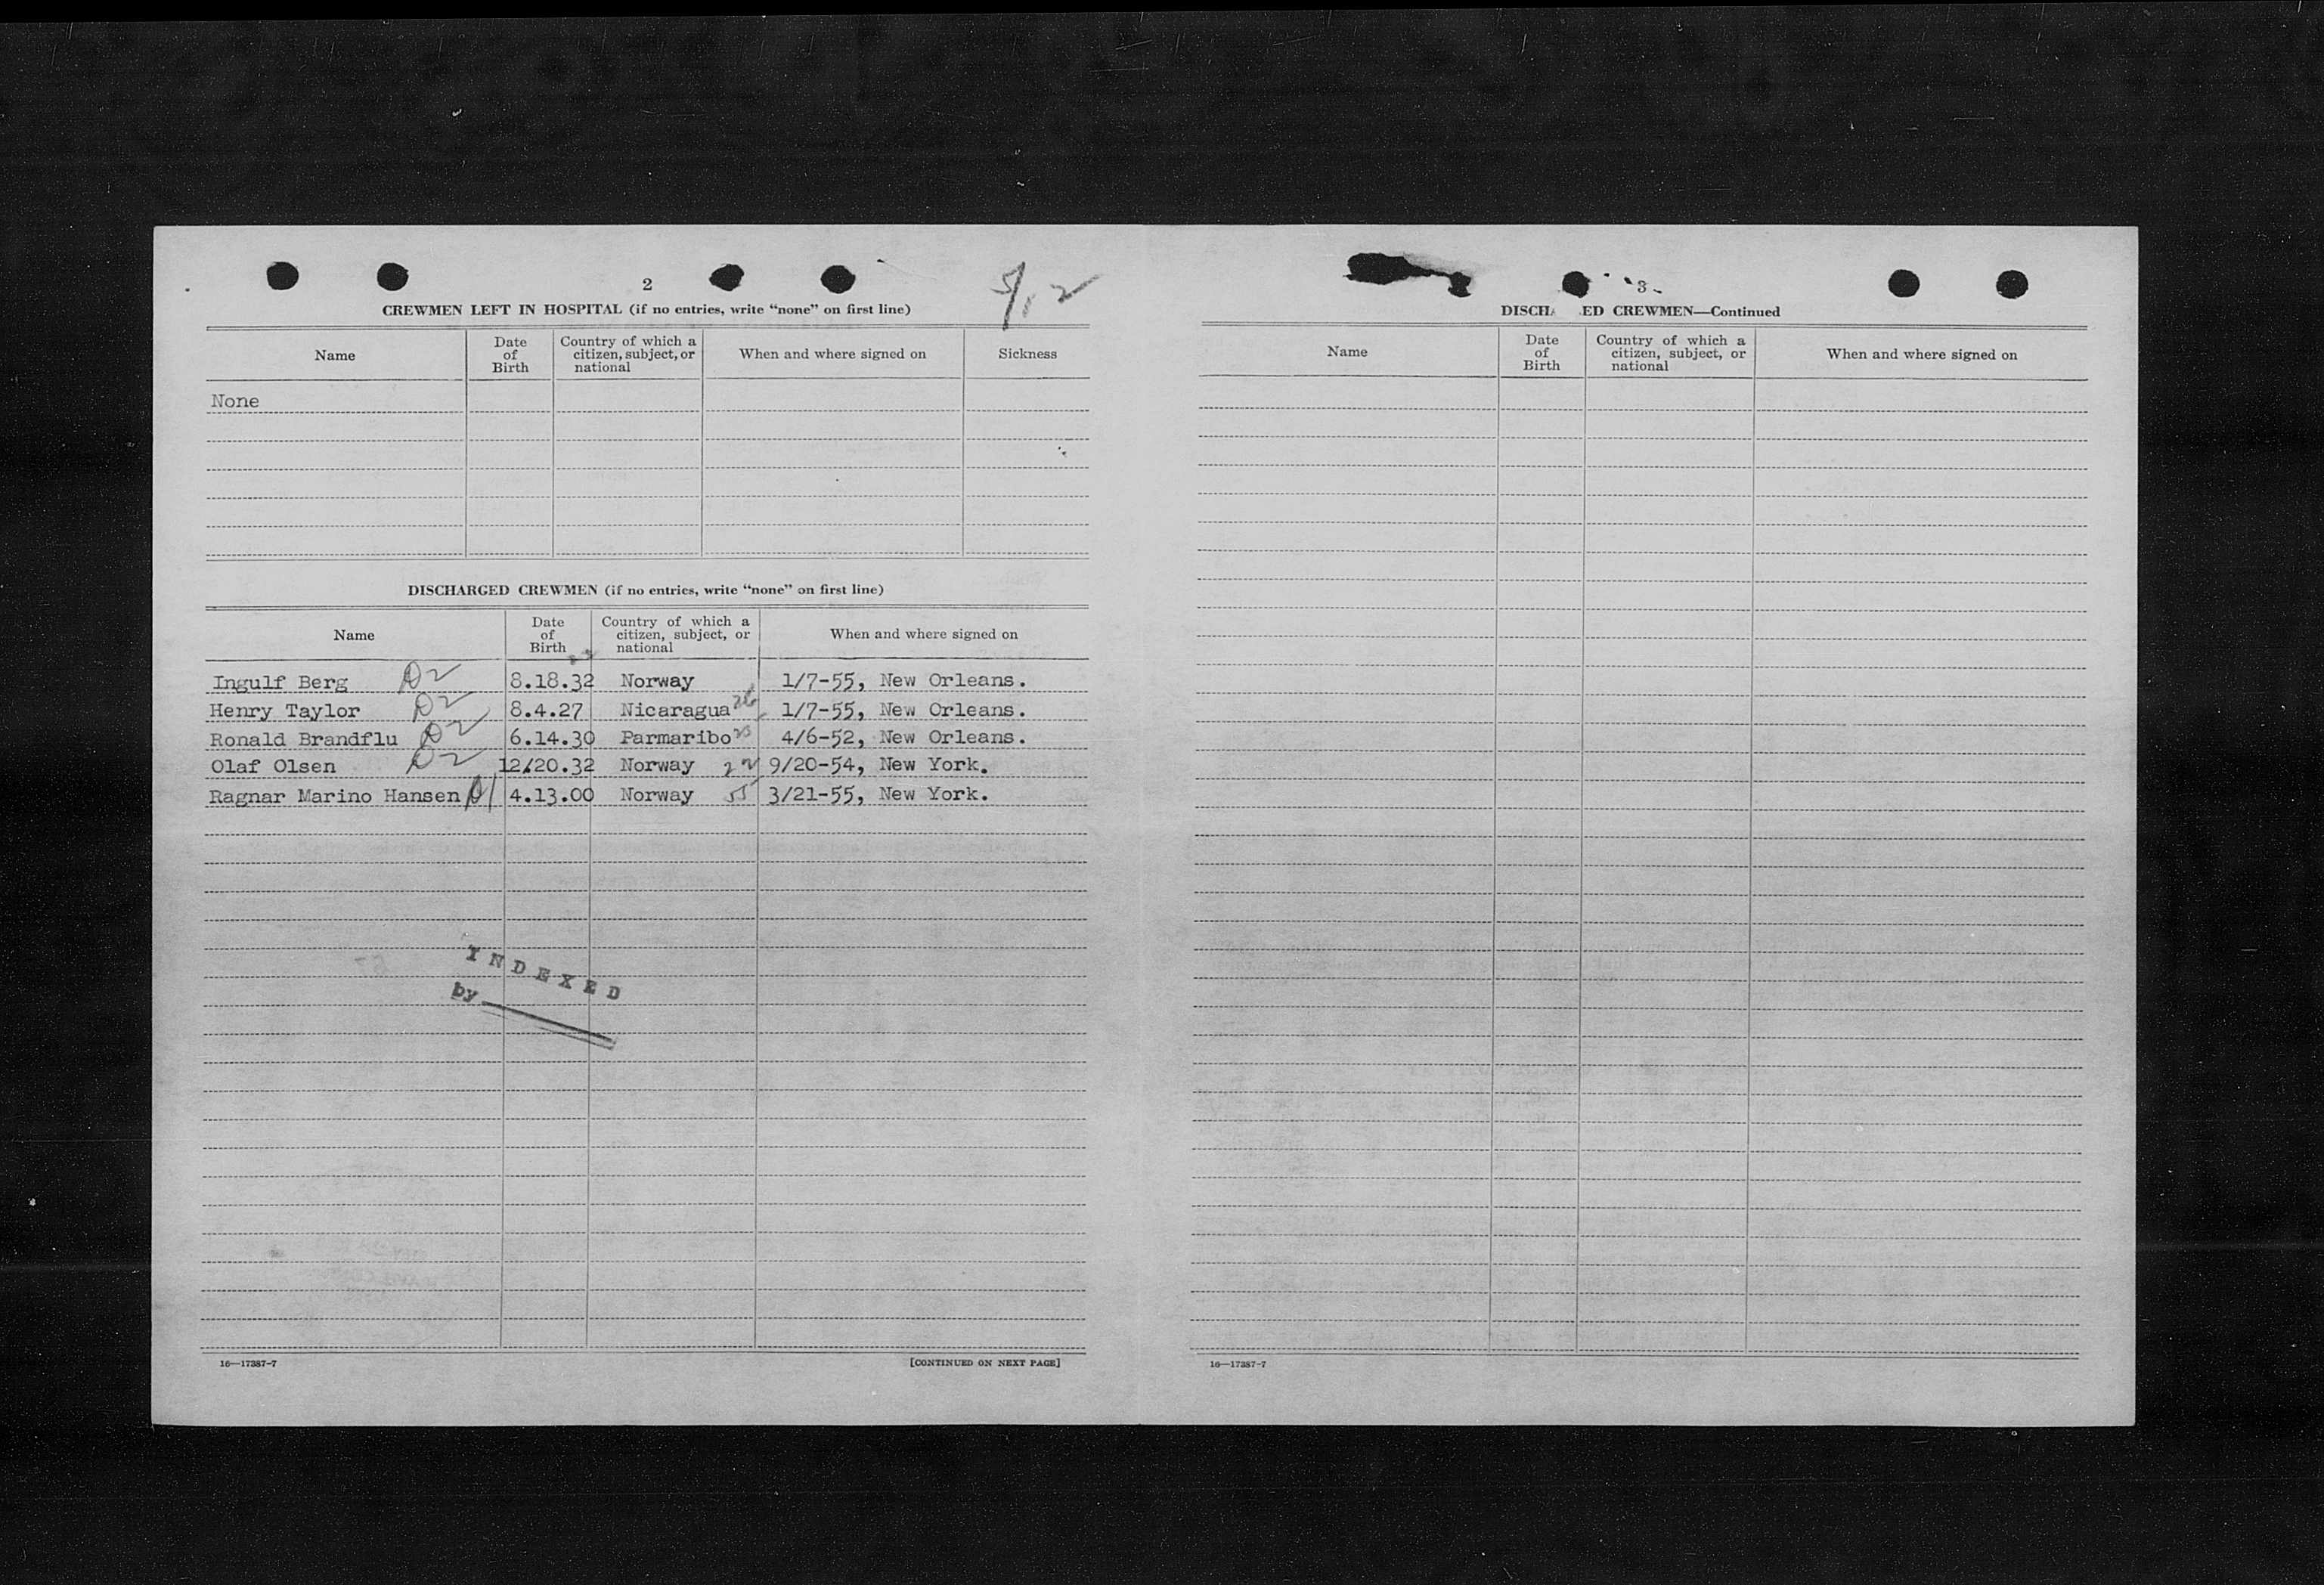 2
5/12
CREWMEN LEFT IN HOSPITAL (if no entries, write “none” on first line)
Name
Date of Birth
Country of which a citizen, subject, or national
When and where signed on
Sickness
None
DISCHARGED CREWMEN (if no entries, write “none” on first line)
Name
Date of Birth
Country of which a citizen, subject, or national
When and where signed on
Ingulf Berg D2 8.18.32 Norway 1/7-55, New Orleans.
Henry Taylor D2 8.4.27 Nicaragua 1/7-55, New Orleans.
Ronald Brandflu D2 6.14.30 Parmaribo 4/6-52, New Orleans.
Olaf Olsen D2 12/20.32 Norway 22 9/20-54, New York.
Ragnar Marino Hansen D1 4.13.00 Norway 55 3/21-55, New York.
INDEXED
by
16—17387-7
[CONTINUED ON NEXT PAGE]
3
DISCH ED CREWMEN—Continued
Name
Date of Birth
Country of which a citizen, subject, or national
When and where signed on
16—17387-7